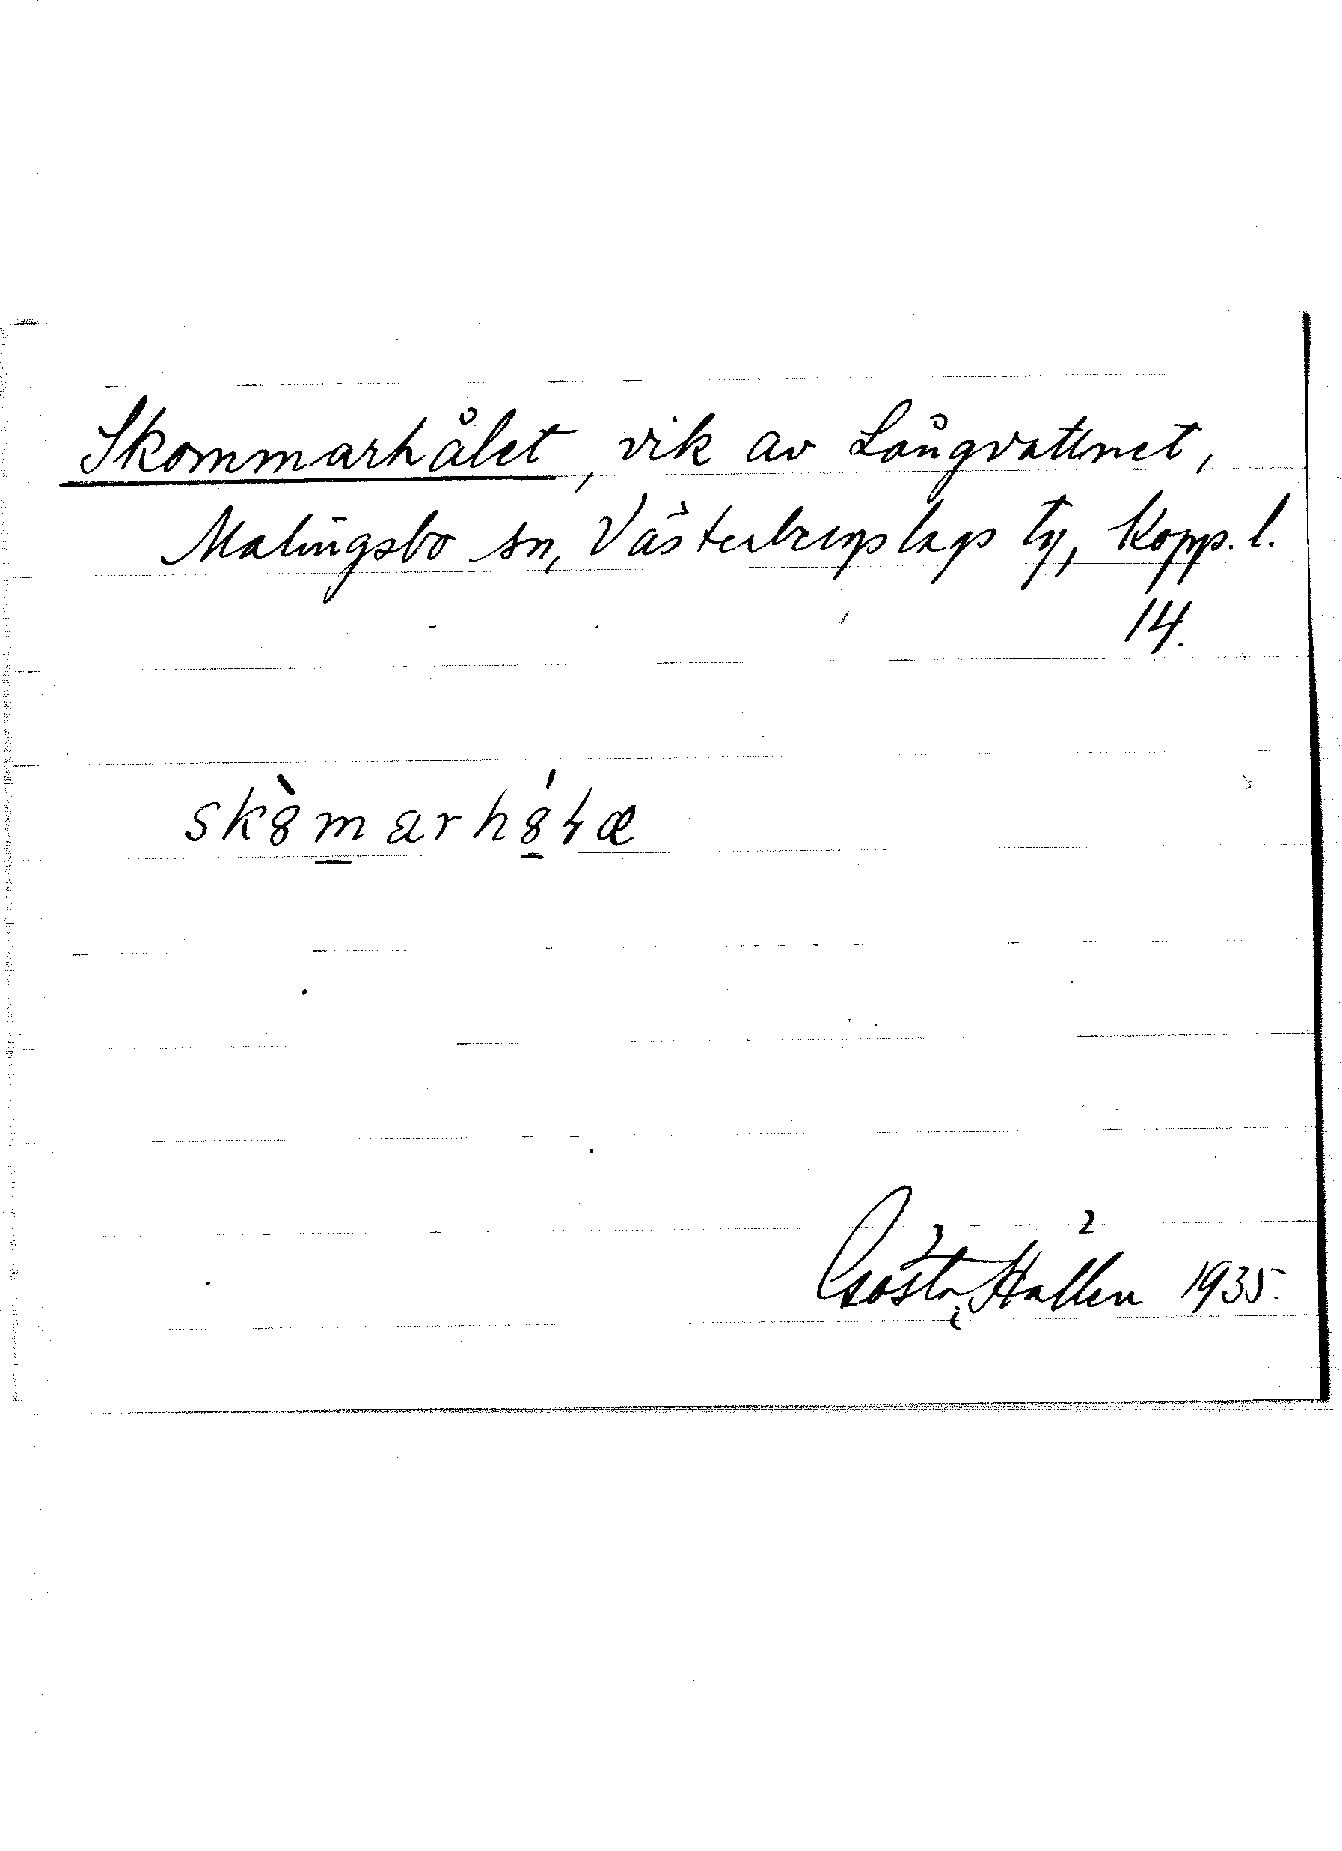 Skommarhålet, vik av Långvattnet,
Malingsbo sn, Västerbergslags tg, Kopp. l.
14.
sk8̀marh8́ɫæ
Gösta Hallén 1935.